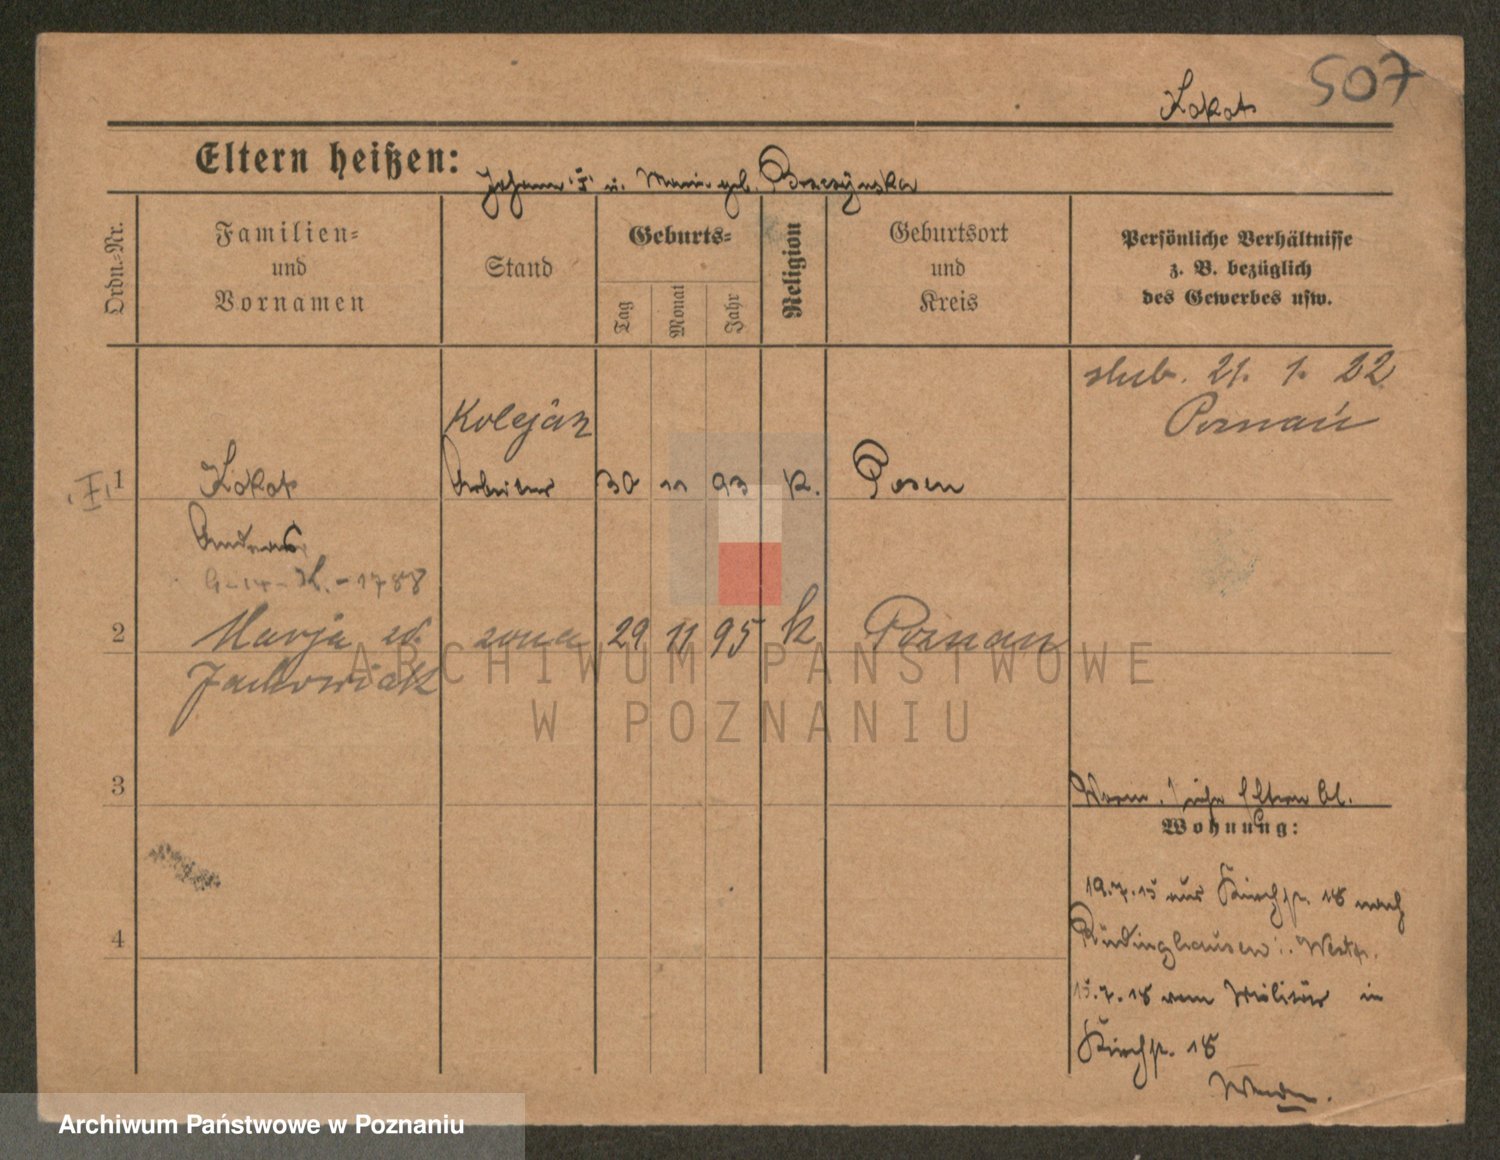 507
Lokats
Eltern heißen: Johann u. Marie geb.
Ordn.-Nr.
Familien- und Vornamen
Stand
Geburts-
Tag
Monat
Jahr
Religion
Geburtsort und Kreis
Persönliche Verhältnisse
z. B. bezüglich
des Gewerbes usw.
ślub. 21. 1. 22
Poznań
Kolejarz
1 Arbeiter 30 11 93 K. Posen
Andreas
2 Marja żona 29 11 95 k Poznań
3
siehe Eltern bl.
Wohnung:
19.7.15 aus Kirchstr. 18 nach
Rüdinghausen i. Westf.
4
15.7.18 vom Militär in
Kirchstr. 18
ARCHIWUM PAŃSTWOWE
W POZNANIU
Archiwum Państwowe w Poznaniu